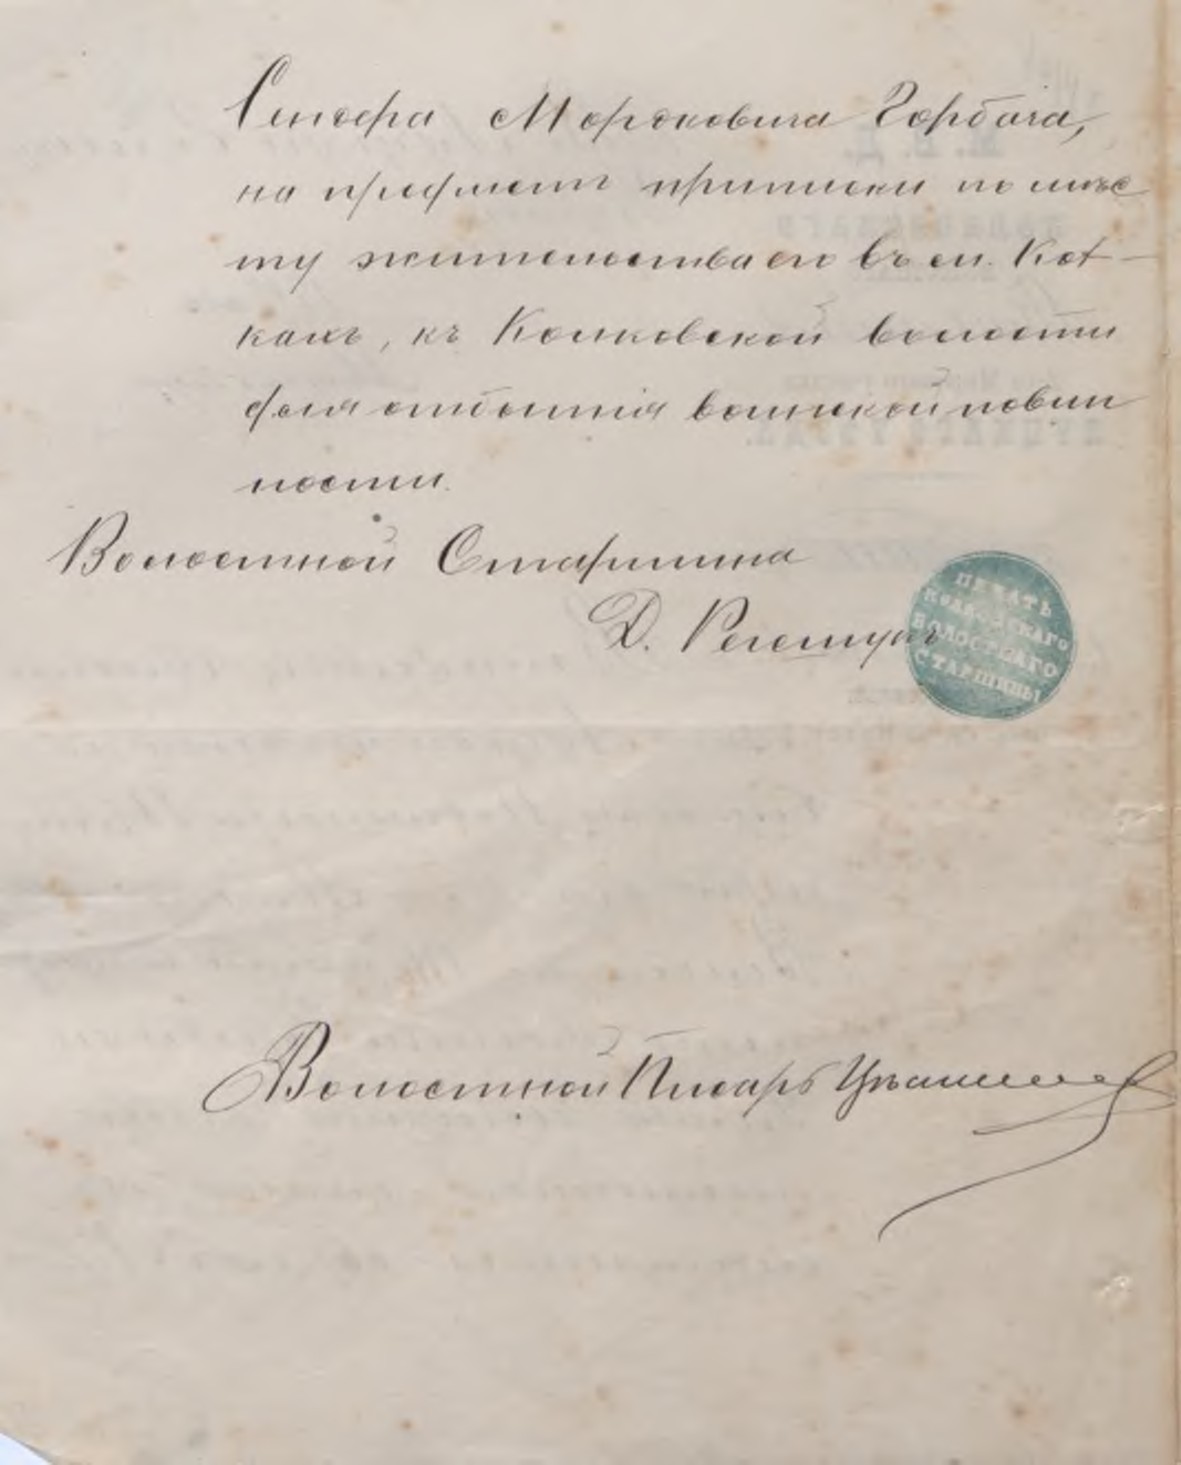 Мордковича Горбача,
на предмет приписки по мѣс
ту жительства его въ с. Кол-
кахъ, къ Колковской волости
для отбытія воинской повин
ности.
Волостной Старшина
Д.
ПЕЧАТЬ
Колковскаго
ВОЛОСТНАГО
СТАРШИНЫ
Волостной Писарь